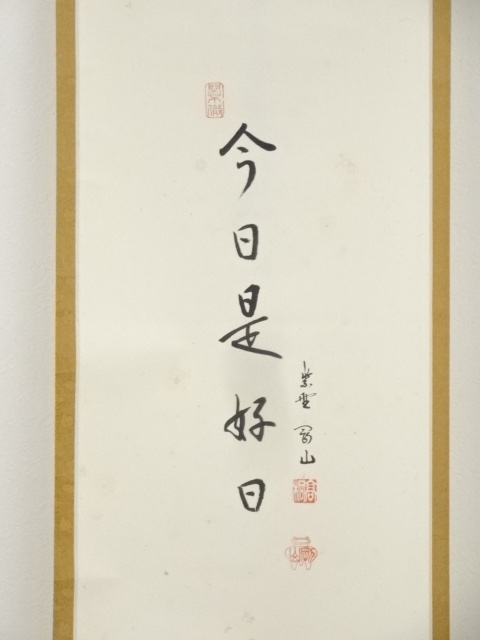 今日是好日
紫野 寛山